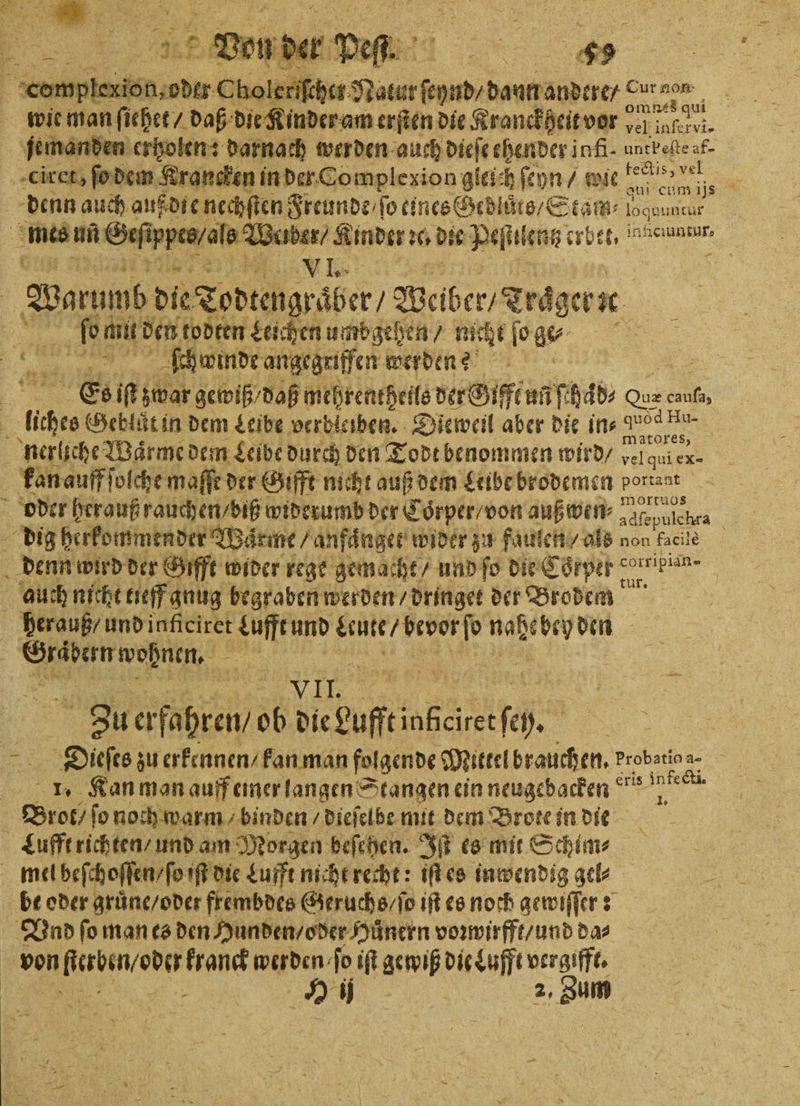 Von der Pest. 59
complexion, oder Cholerischer Natur seynd/ dann andere/
wie man siehet / daß die Kinder am ersten die Kranckheit vor
jemanden erholen: darnach werden auch diese ehender infi-
ciret, so dem Krancken in der Complexion gleich seyn / wie
denn auch auf die nechsten Freunde/ so eines Geblüts/ Stam-
mes uñ Gesippes/ als Weiber/ Kinder ꝛc. die Pestilentz erbet.
Cur non
omnes qui
vel inservi-
unt Peste af-
fectis, vel
qui cum ijs
loquuntur
inficiuntur.
VI.
Warumb die Todtengräber / Weiber/ Träger ꝛc
so mit den todten Leichen umbgehen / nicht so ge-
schwinde angegriffen werden?
Es ist zwar gewiß/ daß mehrentheils der Gifft uñ schäd-
liches Geblüt in dem Leibe verbleiben. Dieweil aber die in-
nerliche Wärme dem Leibe durch den Todt benommen wird/
kan auff solche masse der Gifft nicht auß dem Leibe brodemen
oder herauß rauchen/ biß wiederumb der Cörper/ von außwen-
dig herkommender Wärme / anfänget wider zu faulen / als
denn wird der Gifft wider rege gemacht / und so die Cörper
auch nicht tieff gnug begraben werden / bringet der Brodem
herauß/ und inficiret Lufft und Leute / bevor so nahe bey den
Gräbern wohnen.
Quæ causa,
quod Hu-
matores,
vel qui ex-
portant
mortuos
ad sepulchra
non facilè
corripian-
tur.
VII.
Zu erfahren/ ob die Lufft inficiret sey.
Dieses zu erkennen/ kan man folgende Mittel brauchen.
1. Kan man auff einer langen Stangen ein neugebacken
Brot/ so noch warm / binden / dieselbe mit dem Brote in die
Lufft richten/ und am Morgen besehen. Ist es mit Schim-
mel beschossen/ so ist die Lufft nicht recht: ist es inwendig gel-
be oder grüne/ oder frembdes Geruchs/ so ist es noch gewisser:
Und so man es den Hunden/ oder Hünern vorwirfft/ und da-
von sterben/ oder kranck werden so ist gewiß die Lufft vergifft.
Probatio a-
eris infecti.
1.
H ij 2. Zum